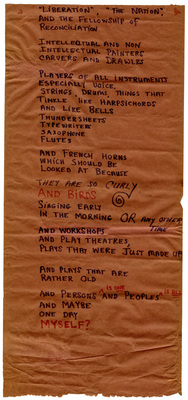 "LIBERATION" "THE NATION",
AND THE FELLOWSHIP OF
RECONCILIATION
INTELLECTUAL AND NON
INTELLECTUAL PAINTERS
CARVERS AND DRAWERS
PLAYERS OF ALL INSTRUMENTS
ESPECIALLY VOICE,
STRINGS, DRUMS, THINGS THAT
TINKLE LIKE HARPSICHORDS
AND LIKE BELLS
THUNDERSHEETS
TYPEWRITER
SAXOPHONE
FLUTES
AND FRENCH HORNS
WHICH SHOULD BE
LOOKED AT BECAUSE
THEY ARE SO CURLY
AND BIRDS
SINGING EARLY
IN THE MORNING OR ANY OTHER
TIME
AND WORKSHOPS
AND PLAY THEATRES,
PLAYS THAT WERE JUST MADE UP
AND PLAYS THAT ARE
RATHER OLD
AND PERSONS AND PEOPLES
AND MAYBE
ONE DAY
MYSELF?